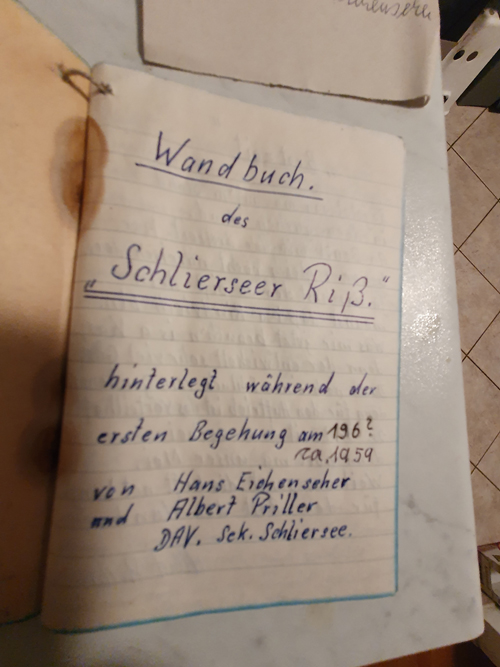 Wandbuch.
des
„Schlierseer Riß."
hinterlegt während der
ersten Begehung am 196?
ca. 1959
von Hans Eichenseher
und Albert Priller
DAV. Sek. Schliersee.